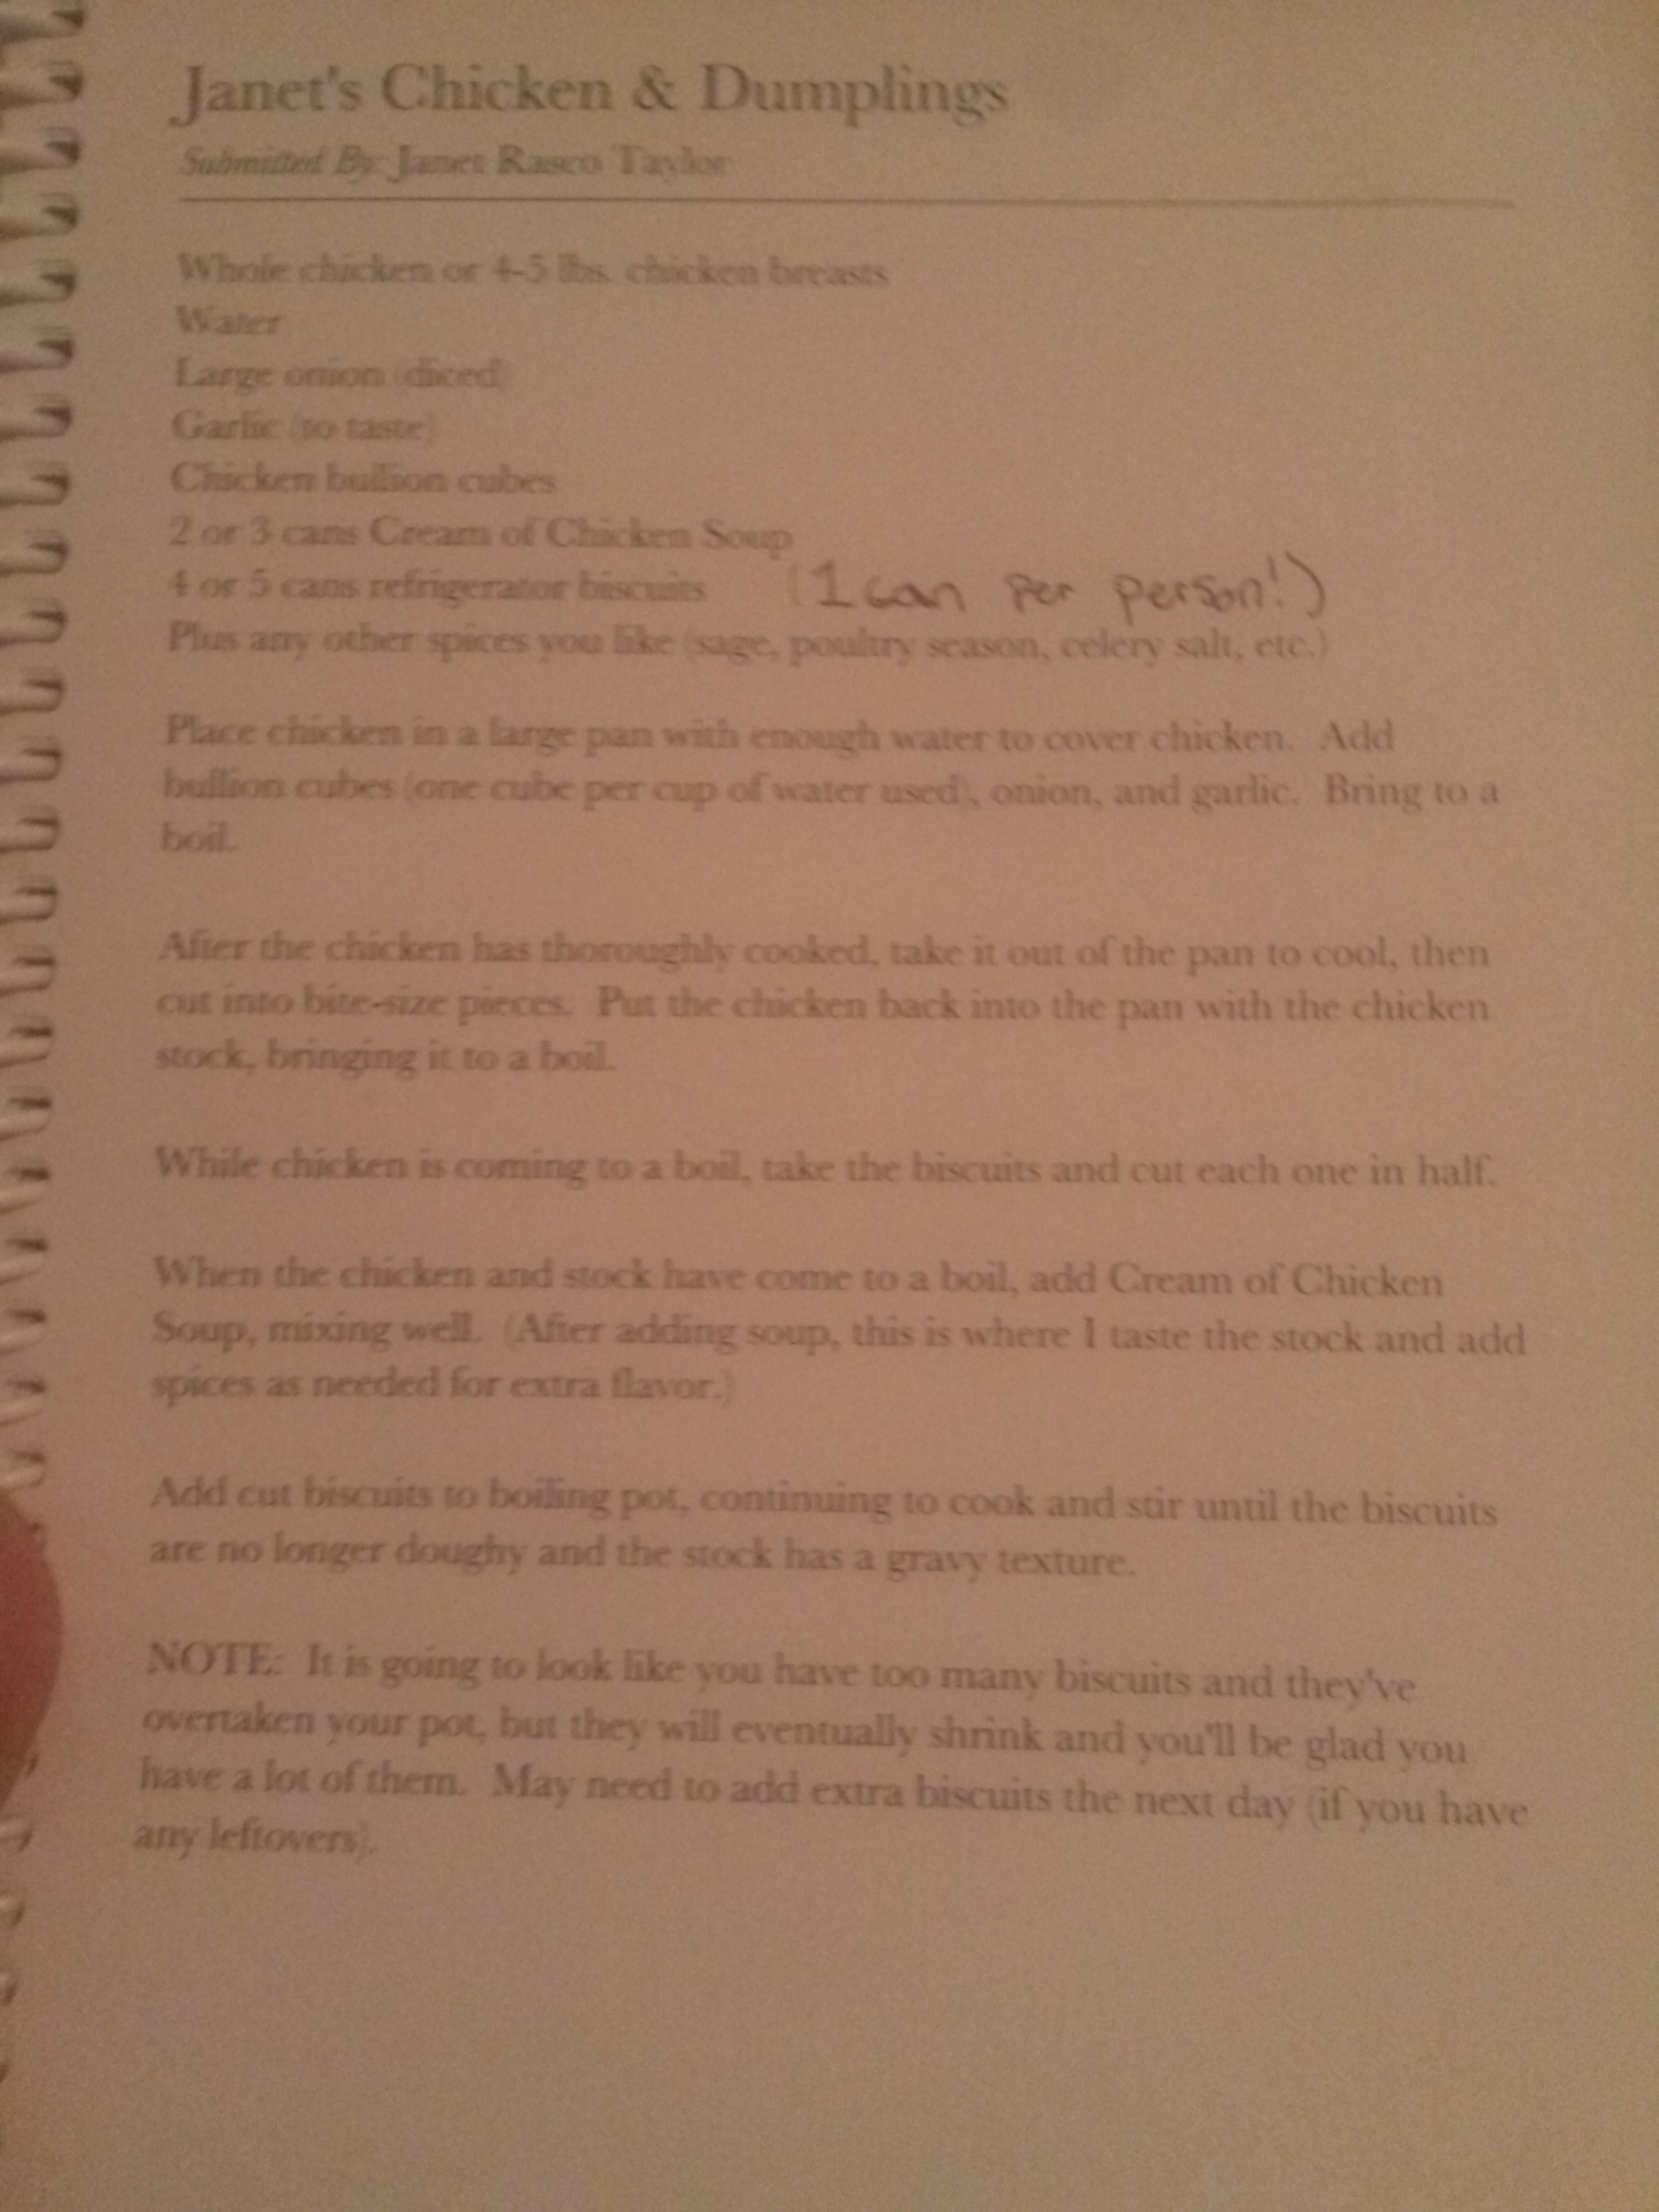 Janet's Chicken & Dumplings
Submitted By: Janet Rasco Taylor
Whole chicken or 4-5 lbs. chicken breasts
Water
Large onion (diced)
Garlic (to taste)
Chicken bullion cubes
2 or 3 cans Cream of Chicken Soup
4 or 5 cans refrigerator biscuits (1 can per person!)
Plus any other spices you like (sage, poultry season, celery salt, etc.)
Place chicken in a large pan with enough water to cover chicken. Add
bullion cubes (one cube per cup of water used), onion, and garlic. Bring to a
boil.
After the chicken has thoroughly cooked, take it out of the pan to cool, then
cut into bite-size pieces. Put the chicken back into the pan with the chicken
stock, bringing it to a boil.
While chicken is coming to a boil, take the biscuits and cut each one in half.
When the chicken and stock have come to a boil, add Cream of Chicken
Soup, mixing well. (After adding soup, this is where I taste the stock and add
spices as needed for extra flavor.)
Add cut biscuits to boiling pot, continuing to cook and stir until the biscuits
are no longer doughy and the stock has a gravy texture.
NOTE: It is going to look like you have too many biscuits and they've
overtaken your pot, but they will eventually shrink and you'll be glad you
have a lot of them. May need to add extra biscuits the next day (if you have
any leftovers).